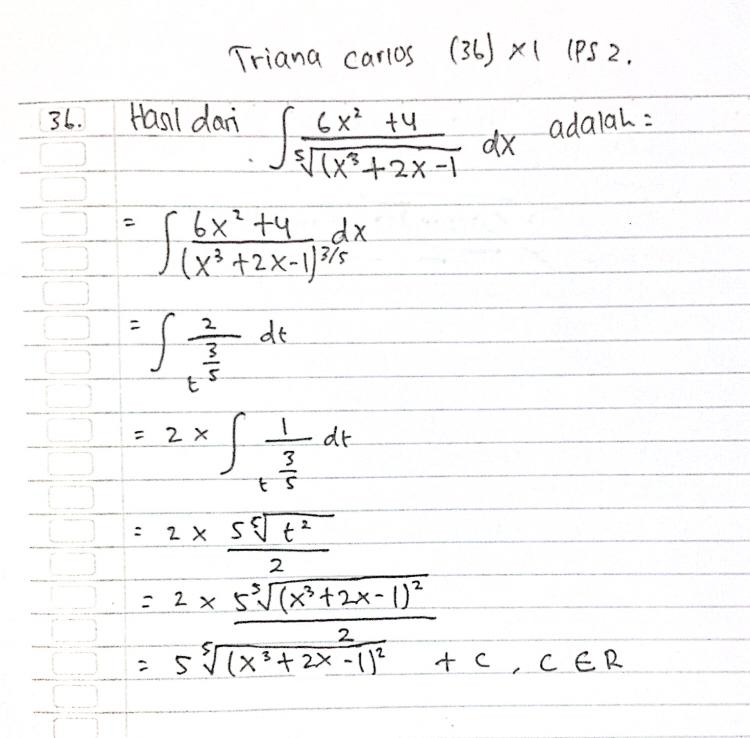 Triana carlos (36) XI IPS 2.
36. Hasil dari ∫ (6x² + 4) / ⁵√((x³ + 2x - 1) dx adalah :
= ∫ (6x² + 4) / (x³ + 2x - 1)^(3/5) dx
= ∫ 2 / t^(3/5) dt
= 2 × ∫ 1 / t^(3/5) dt
= 2 × 5 ⁵√(t²) / 2
= 2 × 5 ⁵√((x³ + 2x - 1)²) / 2
= 5 ⁵√((x³ + 2x - 1)²) + C, C ∈ R